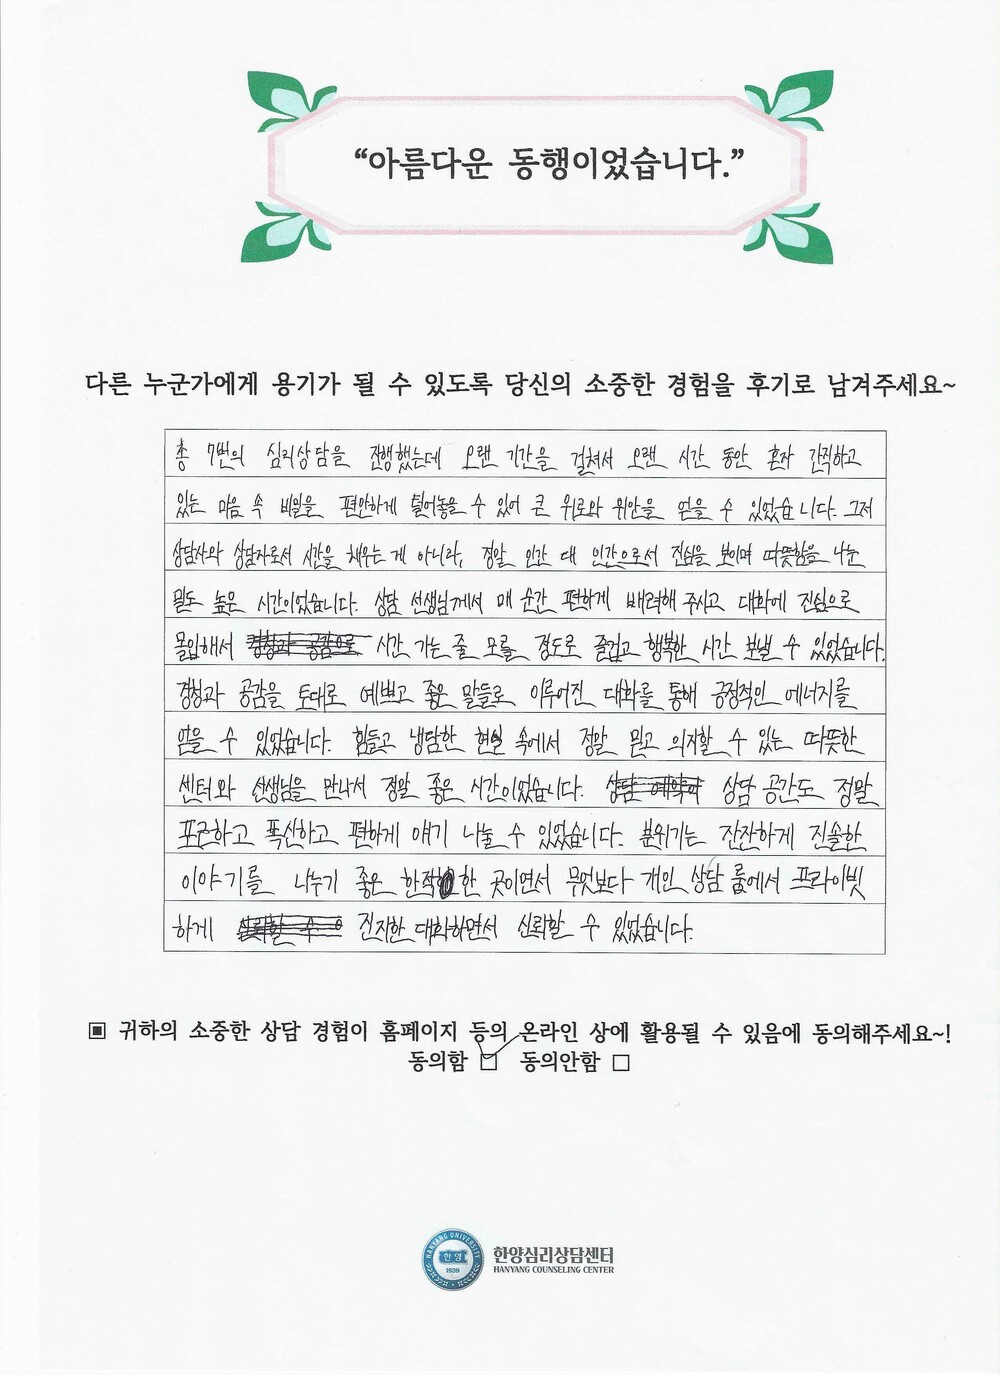 “아름다운 동행이었습니다.”
다른 누군가에게 용기가 될 수 있도록 당신의 소중한 경험을 후기로 남겨주세요~
총 7번의 심리상담을 진행했는데 오랜 기간을 걸쳐서 오랜 시간 동안 혼자 간직하고
있는 마음 속 비밀을 편안하게 털어놓을 수 있어 큰 위로와 위안을 얻을 수 있었습니다. 그저
상담사와 상담자로서 시간을 채우는 게 아니라, 정말 인간 대 인간으로서 진심을 보이며 따뜻함을 나눈
밀도 높은 시간이었습니다. 상담 선생님께서 매 순간 편하게 배려해 주시고 대화에 진심으로
몰입해서 경청과 공감으로 시간 가는 줄 모를 정도로 즐겁고 행복한 시간 보낼 수 있었습니다.
경청과 공감을 토대로 예쁘고 좋은 말들로 이루어진 대화를 통해 긍정적인 에너지를
얻을 수 있었습니다. 힘들고 냉담한 현실 속에서 정말 믿고 의지할 수 있는 따뜻한
센터와 선생님을 만나서 정말 좋은 시간이었습니다. 상담 상담 공간도 정말
포근하고 폭신하고 편하게 얘기 나눌 수 있었습니다. 분위기는 잔잔하게 진솔한
이야기를 나누기 좋은 한적한 곳이면서 무엇보다 개인 상담 룸에서 프라이빗
하게 신뢰할 수 진지한 대화하면서 신뢰할 수 있었습니다.
▣ 귀하의 소중한 상담 경험이 홈페이지 등의 온라인 상에 활용될 수 있음에 동의해주세요~!
동의함 ☑ 동의안함 □
HANYANG UNIVERSITY
한양
1939
한양심리상담센터
HANYANG COUNSELING CENTER